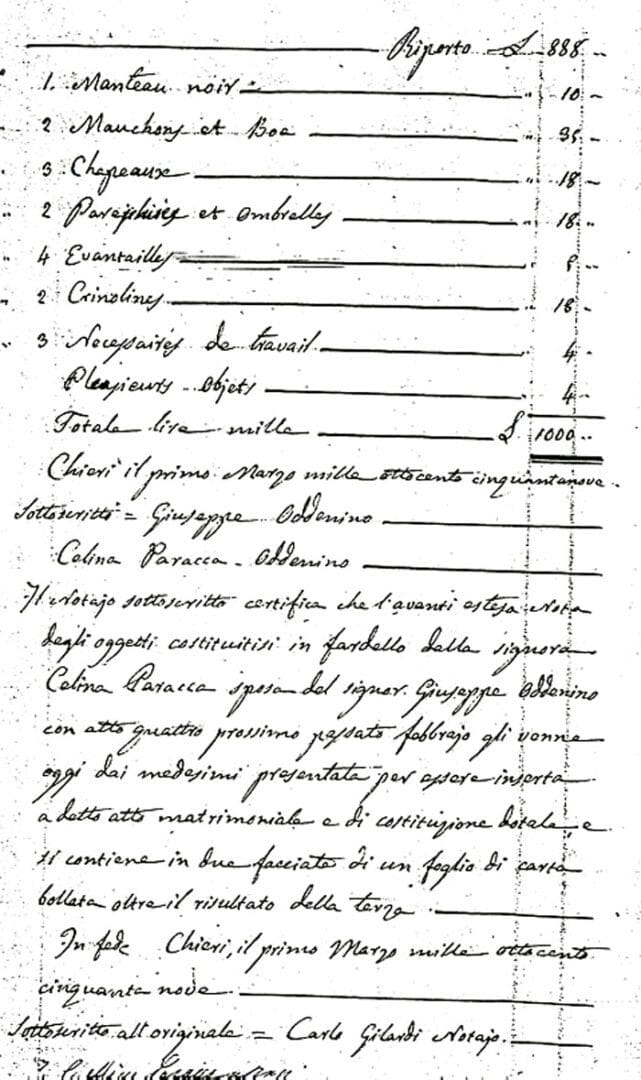 Riporto £ 888 "
1. Manteau noir " 10 "
2 Mauchons et Boa " 35 "
3 Chapeaux " 18 "
2 Parepluies et ombrelles " 18 "
4 Evantailles 5 "
2 Crinolines " 18 "
3 Necessaires de travail " 4 "
Plusieurs objets " 4 "
Totale lire mille £ 1000 "
Chieri il primo Marzo mille ottocento cinquantanove.
Sottoscritti = Giuseppe Oddenino
Celina Paracca - Oddenino
Il Notajo sottoscritto certifica che l'avanti estesa Nota
degli oggetti costituitisi in fardello della signora
Celina Paracca sposa del signor Giuseppe Oddenino
con atto quattro prossimo passato febbrajo gli venne
oggi dai medesimi presentata per essere inserta
a detto atto matrimoniale e di costituzione dotale, e
si contiene in due facciate di un foglio di carta
bollata oltre il risultato della terza.
In fede Chieri, il primo Marzo mille ottocento
cinquanta nove.
Sottoscritto all'originale = Carlo Gilardi Notajo.